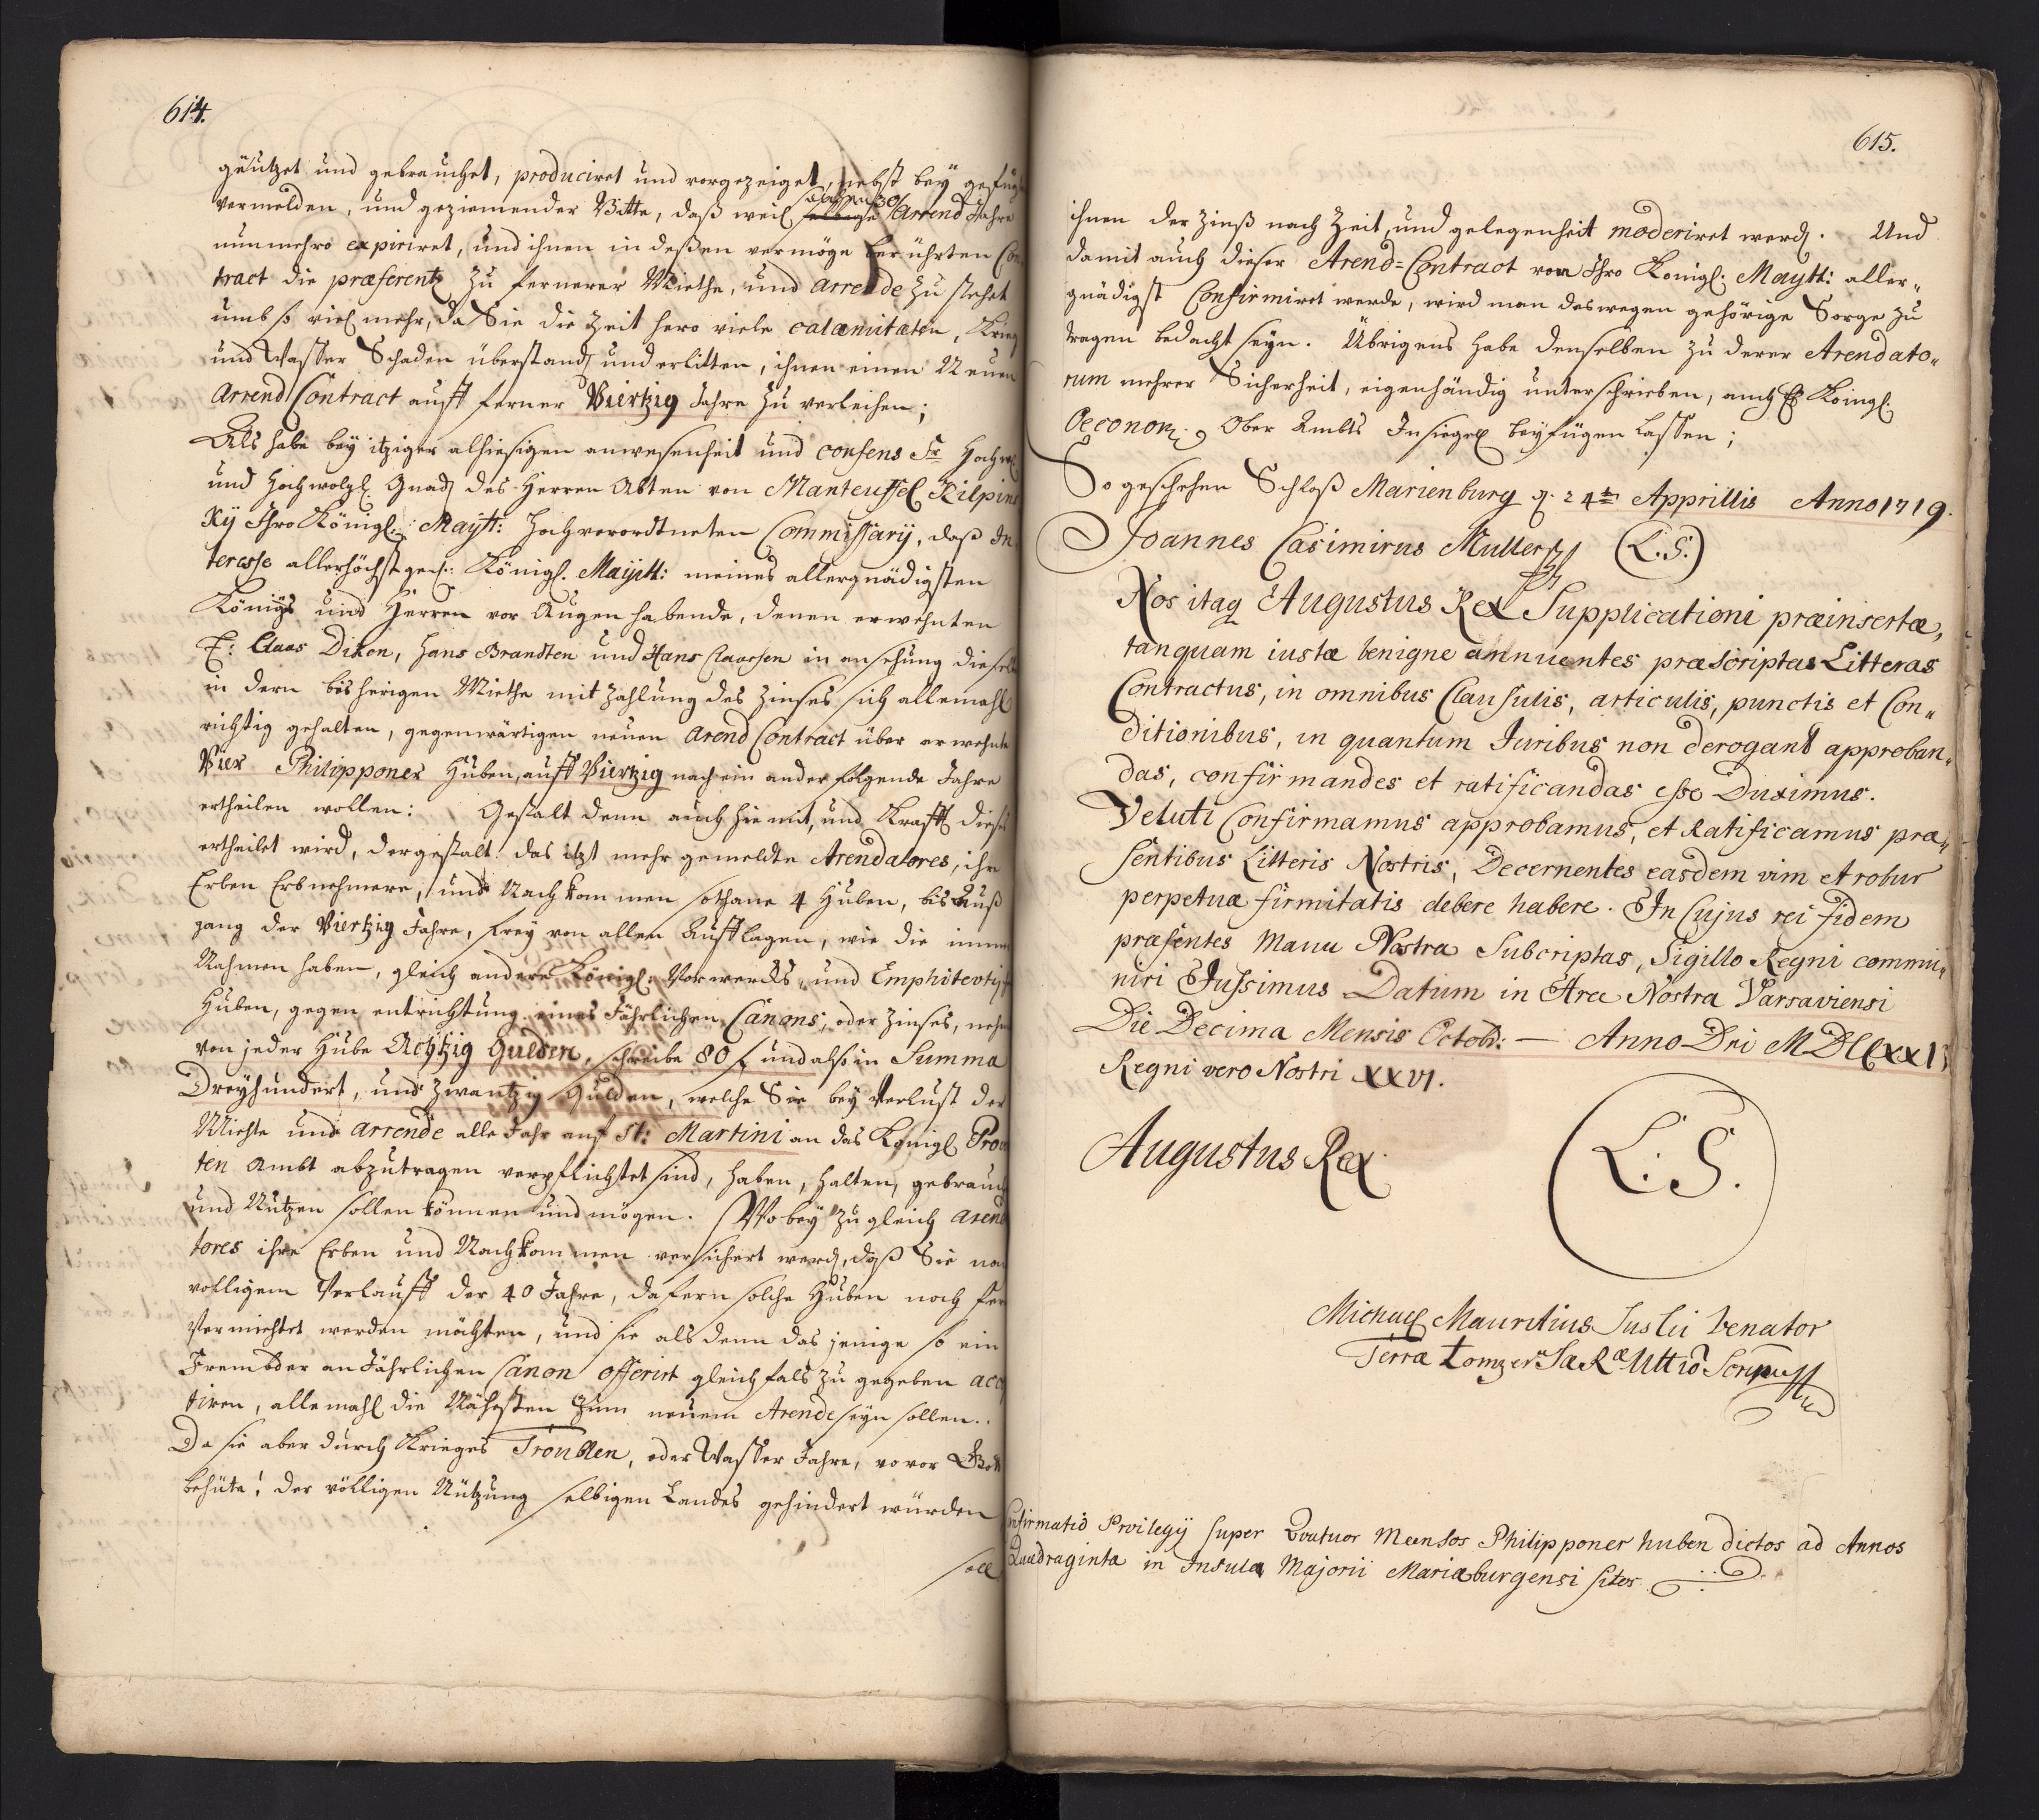 614.
genützet und gebrauchet, produciret und vorgezeiget, nebst bey gefüg
vermelden, und geziemender Bitte, daß weil solche 30 Arrend Jahre
nunmehro expiriret, und ihnen in deßen vermöge berührten Con
tract die præferentz zu fernerer Miethe, und Arrende zu stehet
umb so viel mehr, da Sie die Zeit hero viele calamitaten, Krieg
und Waßer Schaden überstand und erlitten, ihnen einen Neuen
Arrend Contract auff ferner Viertzig Jahre zu verleihen;
Als habe bey itziger alhiesigen anwesenheit und consens Sr Hochw
und Hochwolgl Gnad des Herren Abten von Manteuffel Kilpins
Kÿ Ihro Königl: Maytt: Hochverordtneten Commissarÿ, daß In
teresse allerhöchst ged: Königl. Maÿtt: meines allergnädigsten
Königs und Herren vor Augen habende, denen erwehnten
E: Claas Diken, Hans Brandten und Hans Claassen in ansehung dieselb
in dern bis herigen Miethe mit Zahlung des Zinses sich allemahl
richtig gehalten, gegenwärtigen neuen Arend Contract über erwehnte
Vier Philipponer Huben, auff Viertzig nach ein ander folgende Jahre
ertheilen wollen: Gestalt denn auch hiemit, und Krafft dieses
ertheilet wird, dergestalt das itzt mehr gemeldte Arendatores, ihre
Erben Erbnehmere, und Nachkommen sothane 4 Huben, bis Auß
gang der Viertzig Jahre, frey von allen Aufflagen, wie die immer
Nahmen haben, gleich andere Königl. Vorwercks und Emphitevtis
Huben, gegen entrichtung eines Jährlichen Canons, oder Zinses, nehm
von jeder Hube Achtzig Gulden, schreibe 80 f und also in Summa
Dreyhundert, und Zwantzig Gulden, welche Sie bey Verlust der
Miethe und Arrende alle Jahr auf St: Martini an das Königl Prov
ten Ambt abzutragen verpflichtet sind, haben, halten, gebrauch
und Nutzen sollen können und mögen. Wobey zugleich Arend
tores ihre Erben und Nachkommen versichert werd, daß Sie nach
volligem Verlauff der 40 Jahre, dafern solche Huben noch fer
Vermiehtet werden möchten, und sie als denn das jenige so ein
Frembder an Jährlichen Canon offerirt gleichfals zu gegeben acc
tiren, allemahl die Nähesten zum neuem Arende seyn sollen.
Da sie aber durch Krieges Troublen, oder Waßer Jahre, vovor Gott
behüte! der völligen Nützung selbigen Landes gehindert würden
soll
615.
ihnen der Zinß nach Zeit, und gelegenheit moderiret werd. Und
damit auch dieser Arend=Contract von Ihro Königl: Maytt: aller„
gnädigst Confirmiret werde, wird man deswegen gehörige Sorge zu
tragen bedacht seyn. Übrigens habe denselben zu derer Arendato„
rum mehrer Sicherheit, eigenhändig unterschrieben, auch Königl.
Oeconom: Ober Ambts Insiegel beyfügen lassen;
So geschehen Schloß Marienburg d. 24ten Apprillis Anno 1719.
Joannes Casimirus Muller (L.S.)
Nos itaq Augustus Rex Supplicationi præinsertæ,
tanquam iustæ benigne annuentes præscriptas Litteras
Contractus, in omnibus Clausulis, articulis, punctis et Con„
ditionibus, in quantum Iuribus non derogant approban„
das, confirmandes et ratificandas esse Duximus.
Veluti Confirmamus approbamus, et Ratificamus præ„
sentibus Litteris Nostris, Decernentes easdem vim et robur
perpetuæ firmitatis debere habere. In Cujus rei fidem
præsentes Manu Nostra Subcriptas, Sigillo Regni commu„
niri Jussimus Datum in Arce Nostra Varsaviensi
Die Decima Mensis Octobr: — Anno Dni MDCCXXII
Regni vero Nostri XXVI.
Augustus Rex
L. S.
Michael Mauritius Suslii Venator
Terræ Lomzen SæRæMttis
Confirmatio Prvilegÿ super Qvatuor Mansos Philipponer huben dictos ad Annos
Quadraginta in Insula Majorii Mariæburgensi sitos